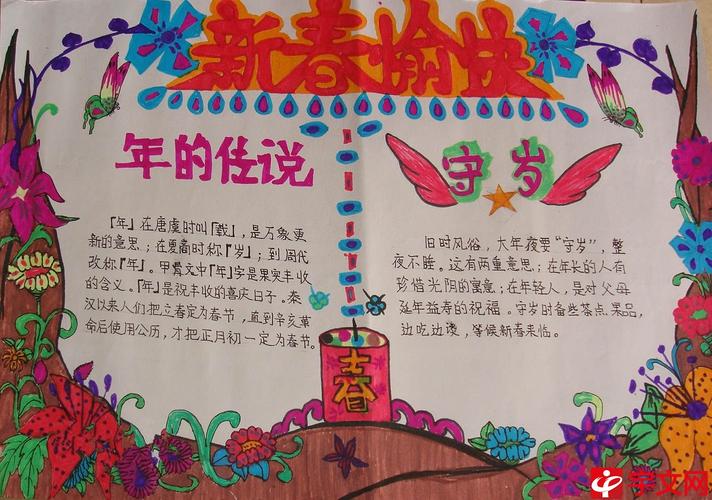 新春愉快
年的传说
「年」在唐虞时叫「载」，是万象更
新的意思；在夏商时称「岁」；到周代
改称「年」。甲骨文中「年」字是果实丰收
的含义。「年」是祝丰收的喜庆日子。秦
汉以来人们把立春定为春节，直到辛亥革
命后使用公历，才把正月初一定为春节。
守岁
旧时风俗，大年夜要“守岁”，整
夜不睡。这有两重意思；在年长的人有
珍惜光阴的寓意；在年轻人，是对父母
延年益寿的祝福。守岁时备些茶点果品，
边吃边谈，等候新春来临。
春
中
学文网